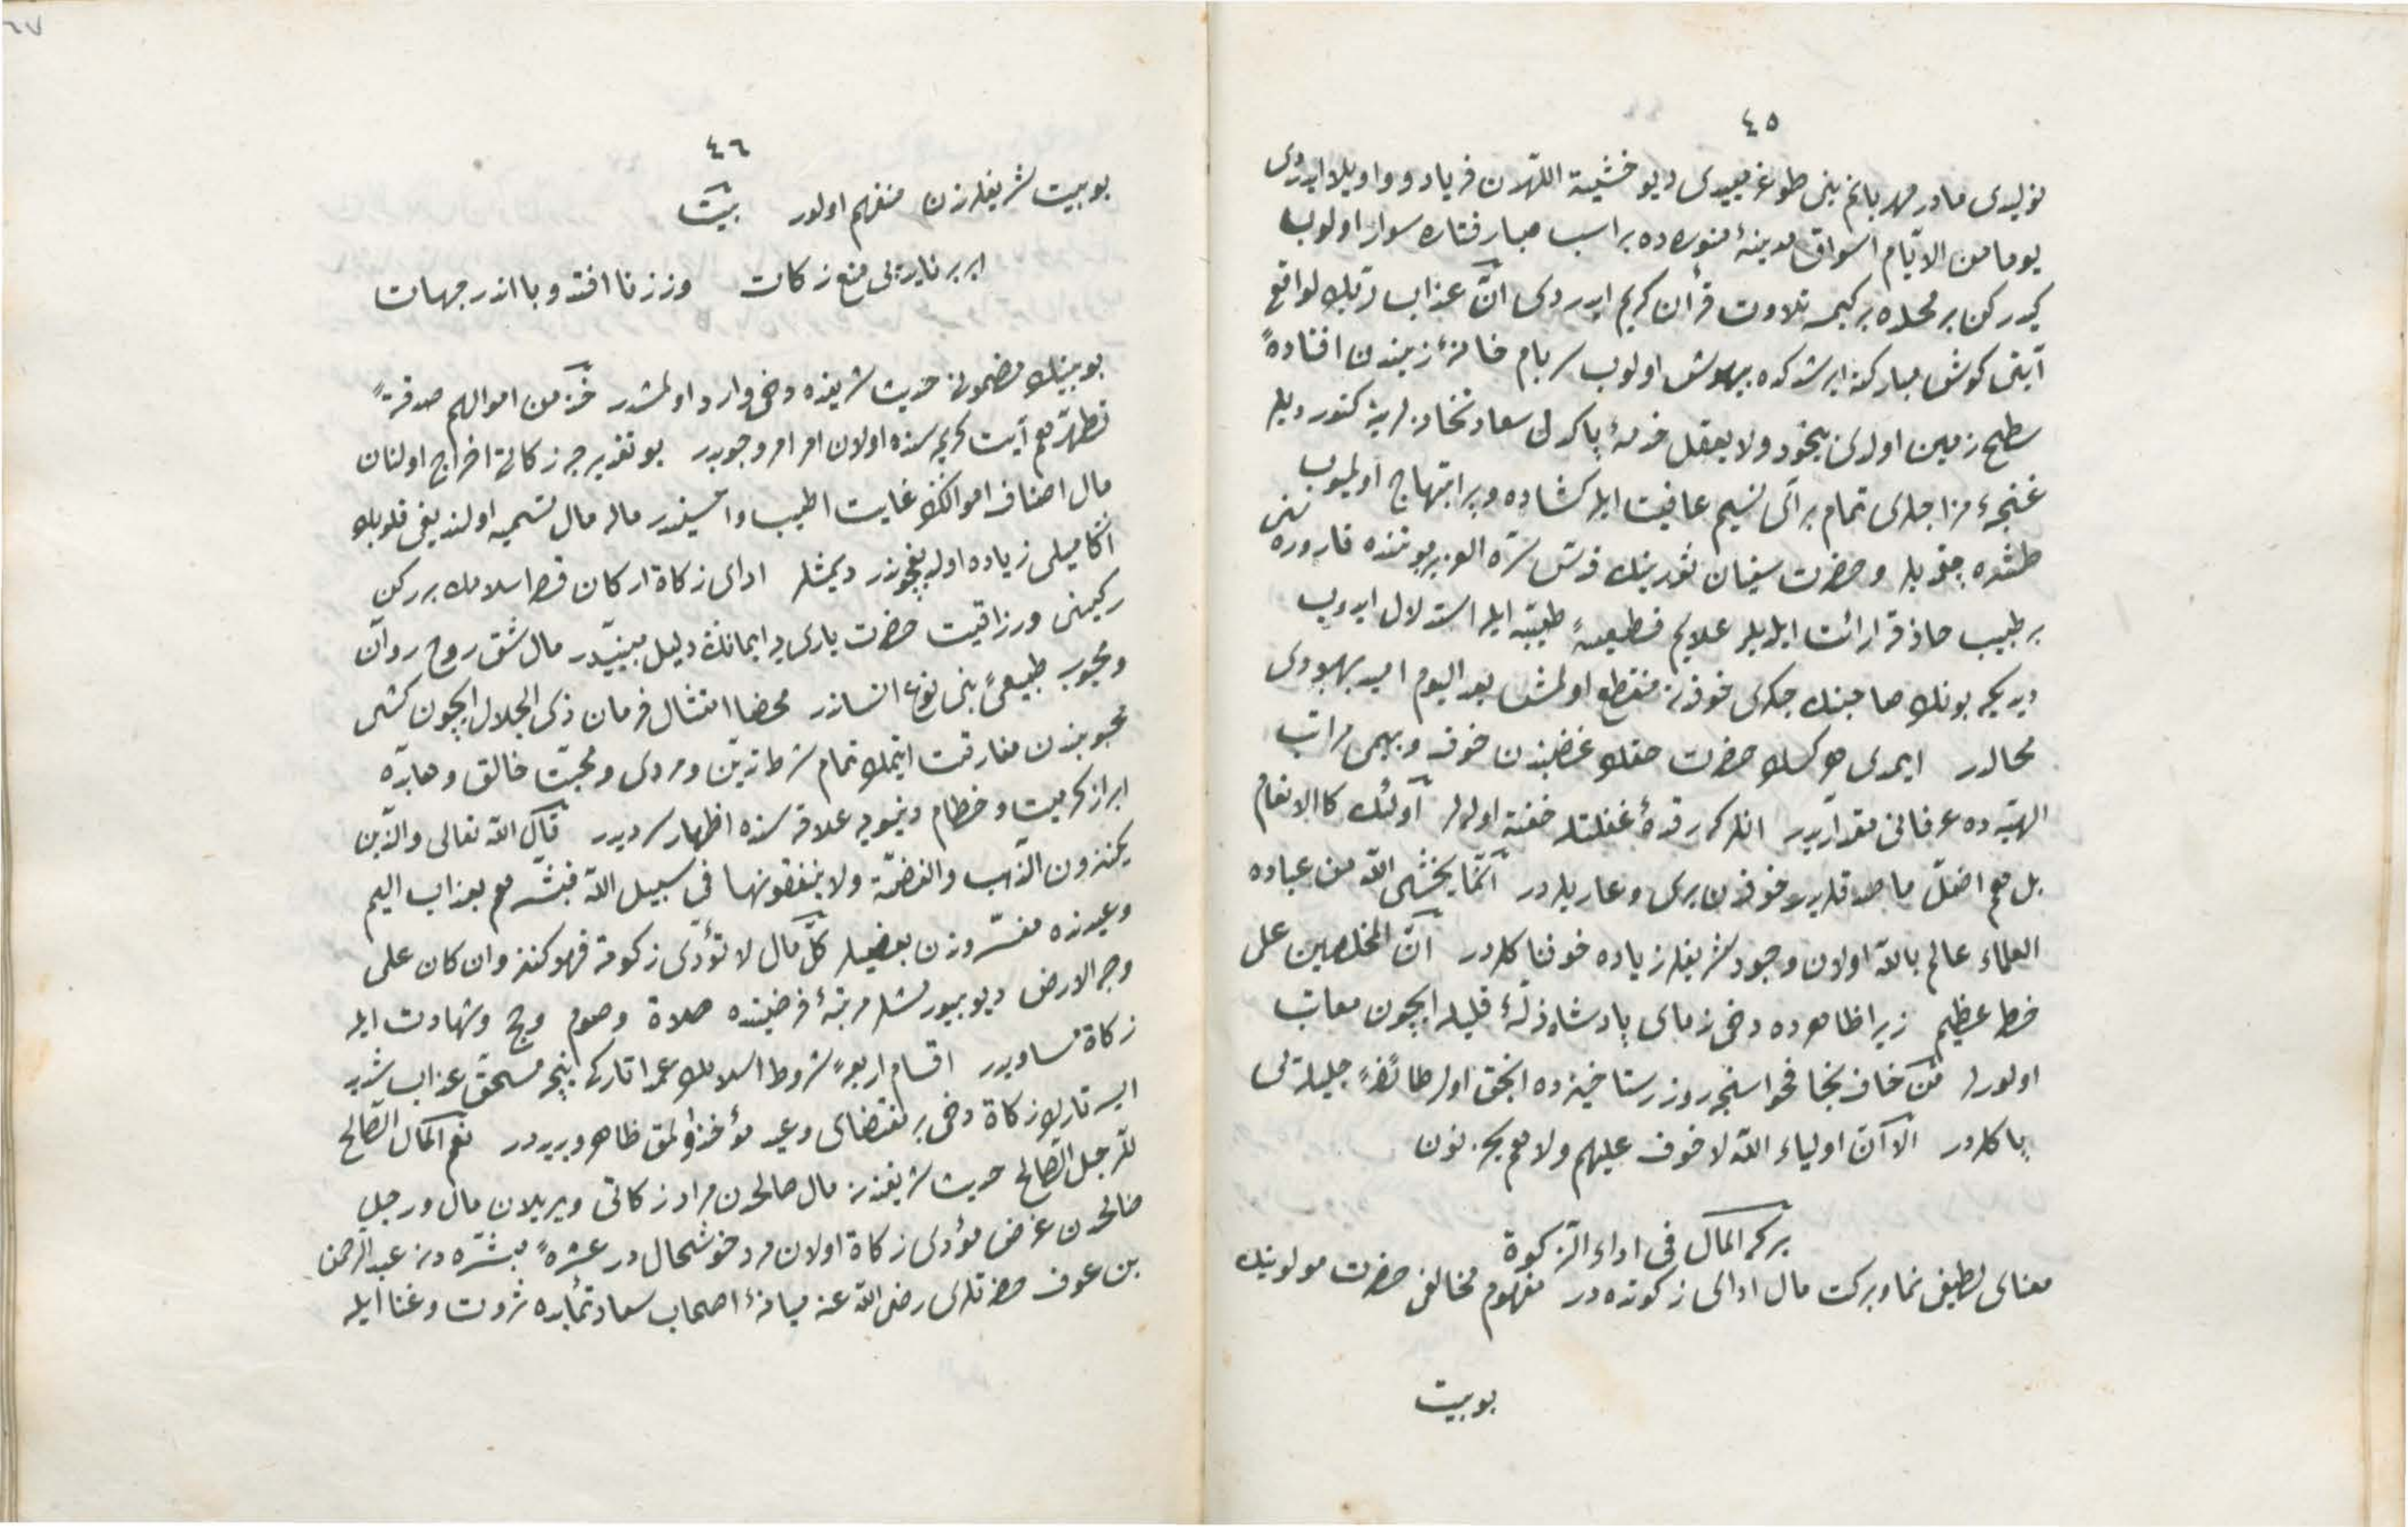 ٤٥
نولیدی مادر مهربانم بنی طوغرمییدی دیو خشیة اللهدن فریاد و واویلا ایدردی
یوما من الایّام اسواق مدینهٔ منوره‌ده بر اسب صبا رفتاره سوار اولوب
کیدرکن بر محلده بر کیمسه تلاوت قرآن کریم ایدردی انّ عذاب ربّك لواقع
آیتی کوش مبارکنه ایرشدکده بیهوش اولوب سر بام خانهٔ زیندن افتادهٔ
سطح زمین اولدی بیخود ولا یعقل خدمهٔ پاکدل سعادتخانه‌لرینه کتوردیلر
غنچهٔ مزاجلری تمام بر آی نسیم عافیت ایله کشاده و پر ابتهاج اولمیوب
طشده چقدیلر و حضرت سفیان ثورینك قدّس سرّه العزیز بوننده قاروره‌سنی
بر طبیب حاذقه ارائت ایلدیلر علایم قطعیهٔ طبیّه ایله استدلال ایدوب
دیدیکه بونك صاحبنك جکری خوفدن منقطع اولمش بعد الیوم امید بهبودی
محالدر ایمدی هر کسك حضرت حقك غضبندن خوف و بیمی مراتب
الهیّه‌ده عرفانی مقداریدر انلرکه رقدهٔ غفلتله خفته اولالر اولئك كالانعام
بل هم اضلّ ما صدقلریدر خوفدن بری و عاریلردر انّما یخشی الله من عباده
العلماء عالم بالله اولان وجود شریفلر زیاده خوفناکلردر انّ المخلصین علی
خطر عظیم زیرا ظاهرده دخی ندمای پادشاه ذلّهٔ قلیله ایچون معاتب
اولورلر من خاف نجا فحواسنجه روز رستاخیزده انجق اول طائفهٔ جلیله‌ترسی
پاکلردر الا انّ اولیاء الله لا خوف علیهم ولا هم یحزنون
برکة المال فی اداء الزّکوة
معنای لطیفی نما و برکت مال ادای زکوتده‌در مفهوم مخالفی حضرت مولوینك
بو بیت
٤٦
بو بیت شریفلرندن منفهم اولور بیت
ابر برناید پی منع زکات وز زنا افتد وبا اندر جهات
بو بیتك مضمونی حدیث شریفده دخی وارد اولمشدر خذ من اموالهم صدقةً
تطهّرهم آیت کریمه‌سنده اولان امر امر وجوبدر بو تقدیرجه زکاته اخراج اولنان
مال اصناف اموالكك غایت اطیب و احسنیدر ماله مال تسمیه اولندیغی قلوبك
اكا میلی زیاده اولدیغیچوندر دیمشلر ادای زکاة ارکان قصر اسلامك بر رکن
رکینی ورزاقیت حضرت باری‌یه ایمانك دلیل مبینیدر مال شق روح روان
و محبوب طبیعئ بنی نوع انساندر محضا امتثال فرمان ذی الجلال ایچون کشی
محبوبندن مفارقت ایتمك تمام شرط تدیّن و مردی و محبّت خالق و معابده
ابراز کرمیت و خطام دنیویه علاقه‌سنده اظهار سردیدر قال الله تعالی والّذین
یکنزون الذّهب والفضّة ولا ینفقونها فی سبیل الله فبشّرهم بعذاب الیم
وعیدنده مفسّریندن بعضیلر کلّ مال لا تؤدّی زکوته فهو کنز وان کان علی
وجه الارض دیو بیورمشلر مرتبهٔ فرضیتده صلاة وصوم و حج و شهادت ایله
زکاة مساویدر اقسام اربعهٔ شروط اسلامك عمدا تارکی نیجه مستحقّ عذاب شدید
ایسه تارك زکاة دخی بر مقتضای وعید مؤاخذ اولمق ظاهر و بدیدر نعم المال الصّالح
للرّجل الصّالح حدیث شریفنده مال صالحدن مراد زکاتی ویریلان مال و رجل
صالحدن غرض مؤدی زکاة اولان مرد خوشحالدر عشرهٔ مبشّره‌دن عبدالرّحمن
بن عوف حضرتلری رضی الله عنه میانهٔ اصحاب سعادتمآبده ثروت و غنا ایله